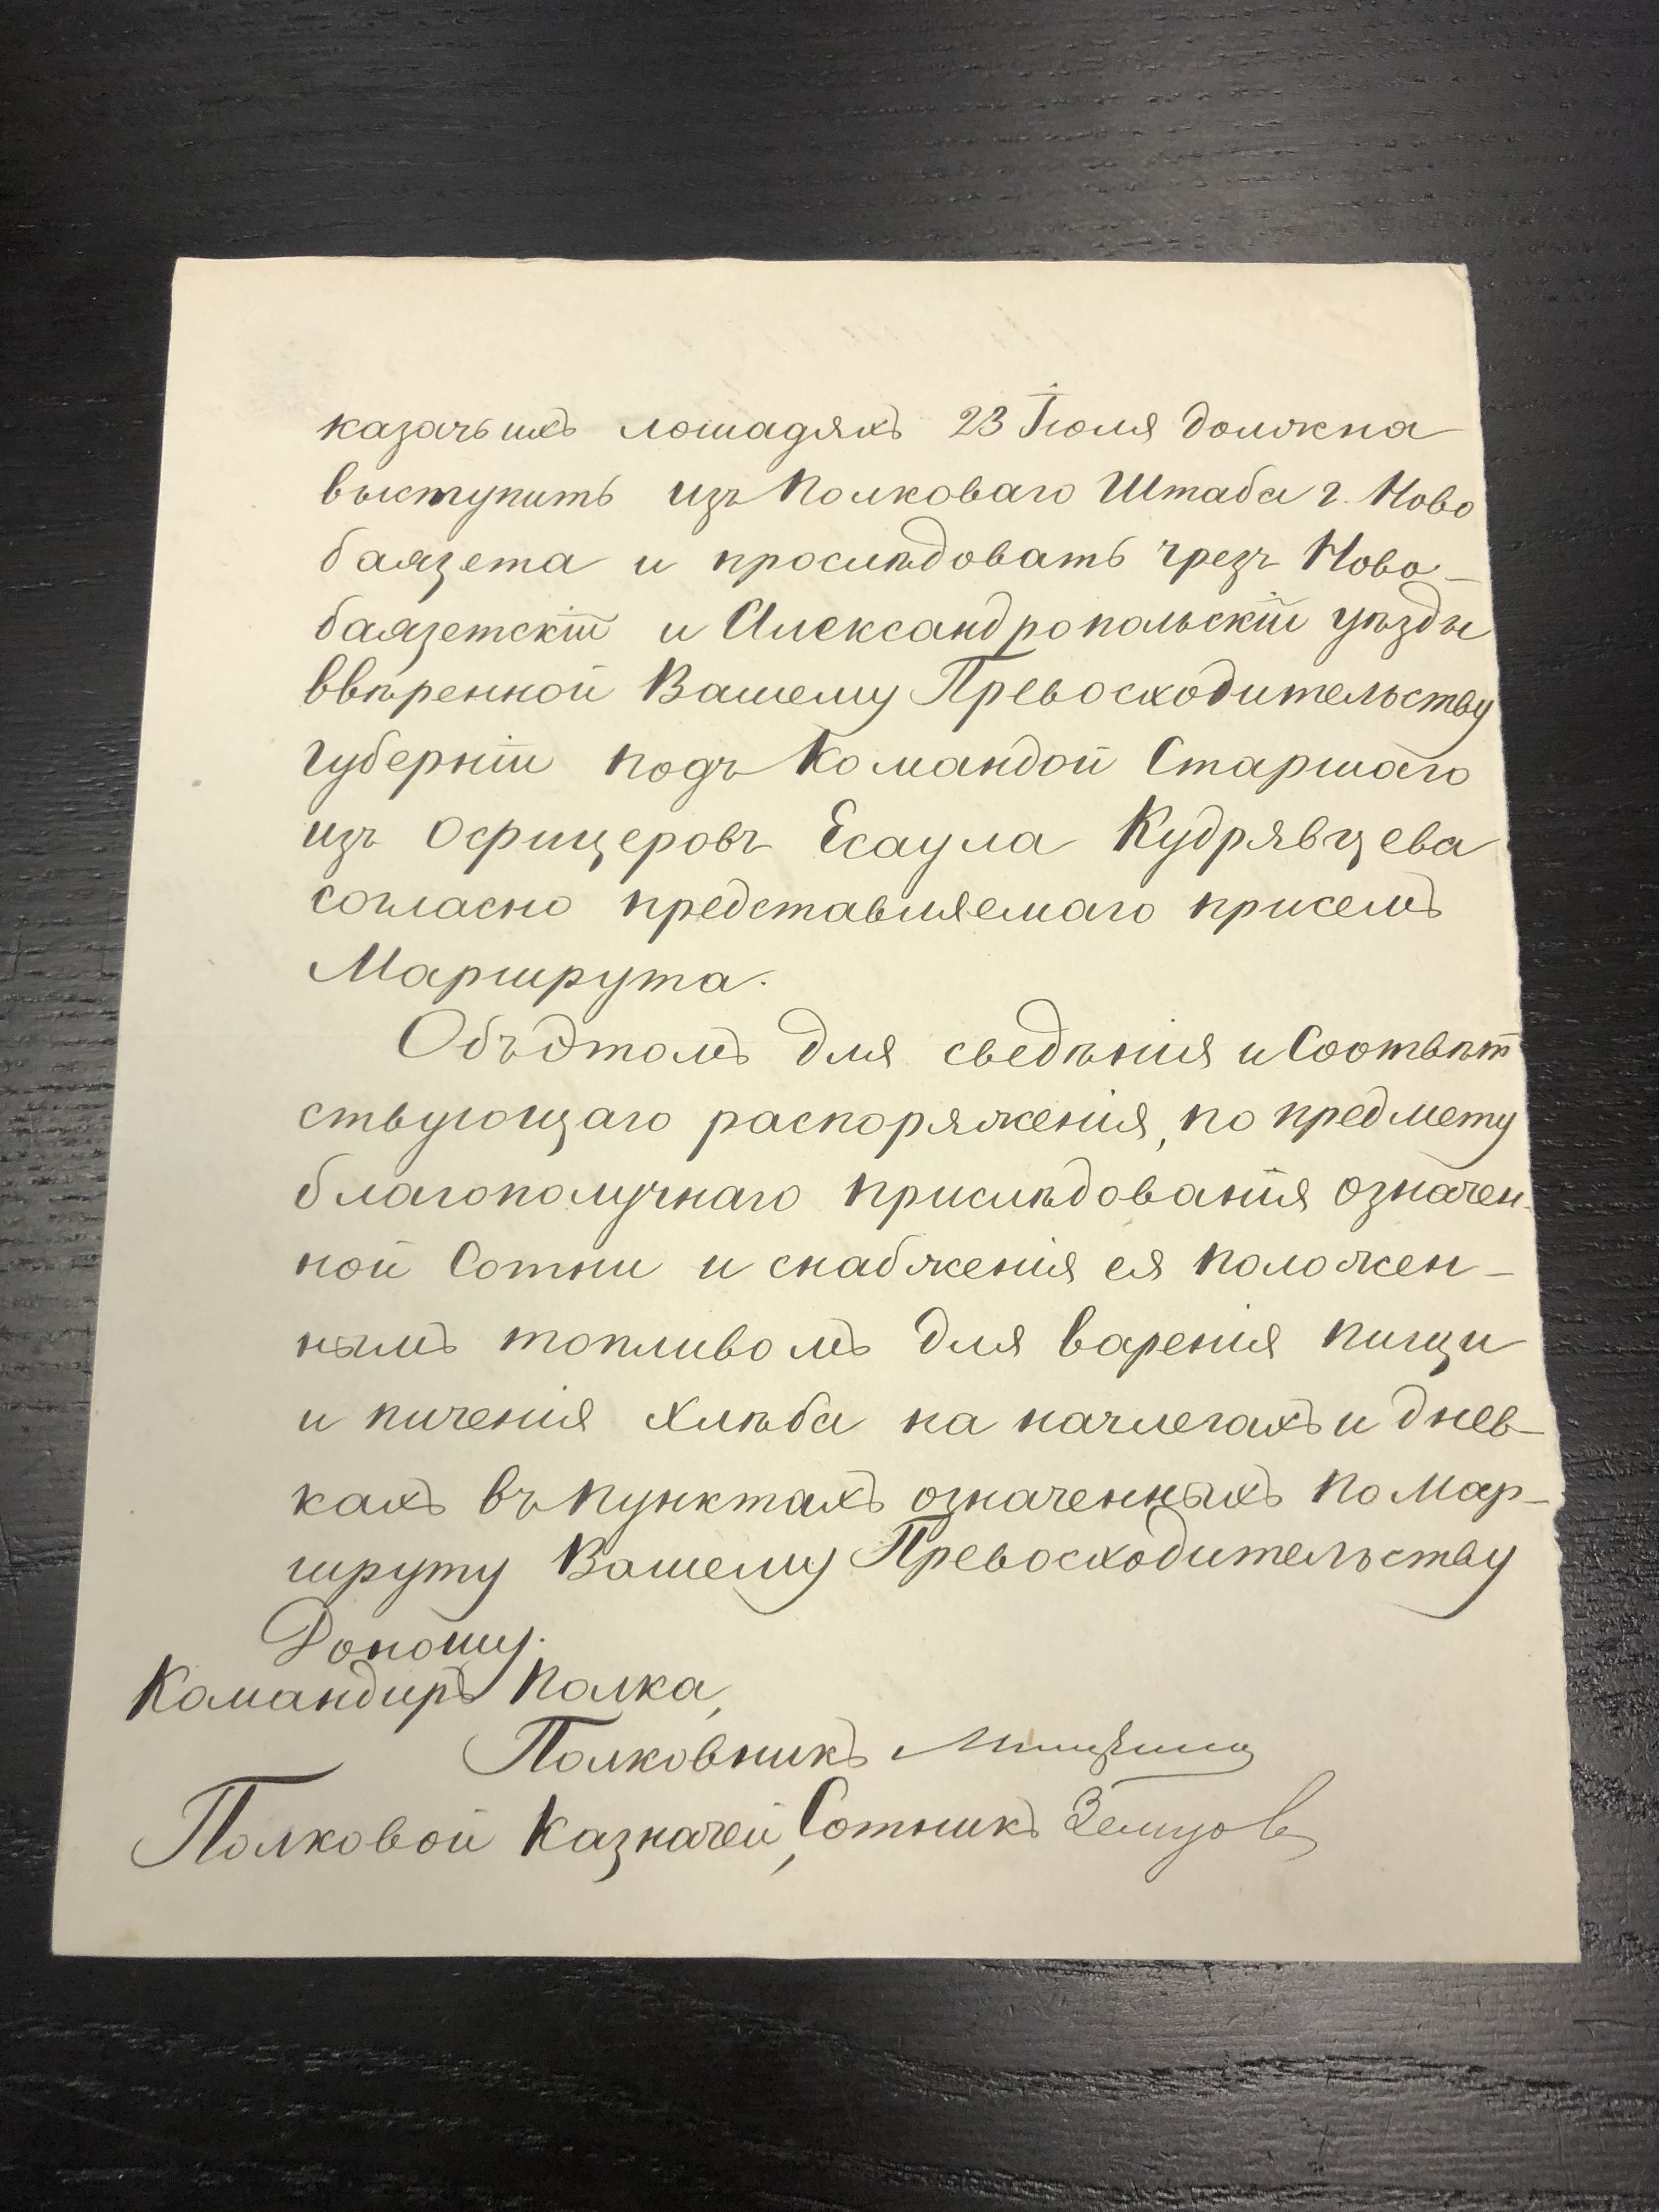 казачьихъ лошадяхъ 23 Іюля должна
выступить изъ Полковаго Штаба г. Ново
баязета и прослѣдовать чрезъ Ново-
баязетскій и Александропольскій уѣзды
ввѣренной Вашему Превосходительству
губерніи подъ Командой Старшаго
изъ Офицеровъ Есаула Кудрявцева
согласно представляемаго присемъ
Маршрута.
Объэтомъ для сведѣнія и Соотвѣт
ствующаго распоряженія, по предмету
благополучнаго прислѣдованія означен-
ной Сотни и снабженія ея положен-
нымъ топливомъ для варенія пищи
и пиченія хлѣба на начлегахъ и днев-
кахъ въ пунктахъ означенныхъ по Мар-
шруту Вашему Превосходительству
Доношу.
Командиръ Полка,
Полковникъ
Полковой Казначей, Сотникъ